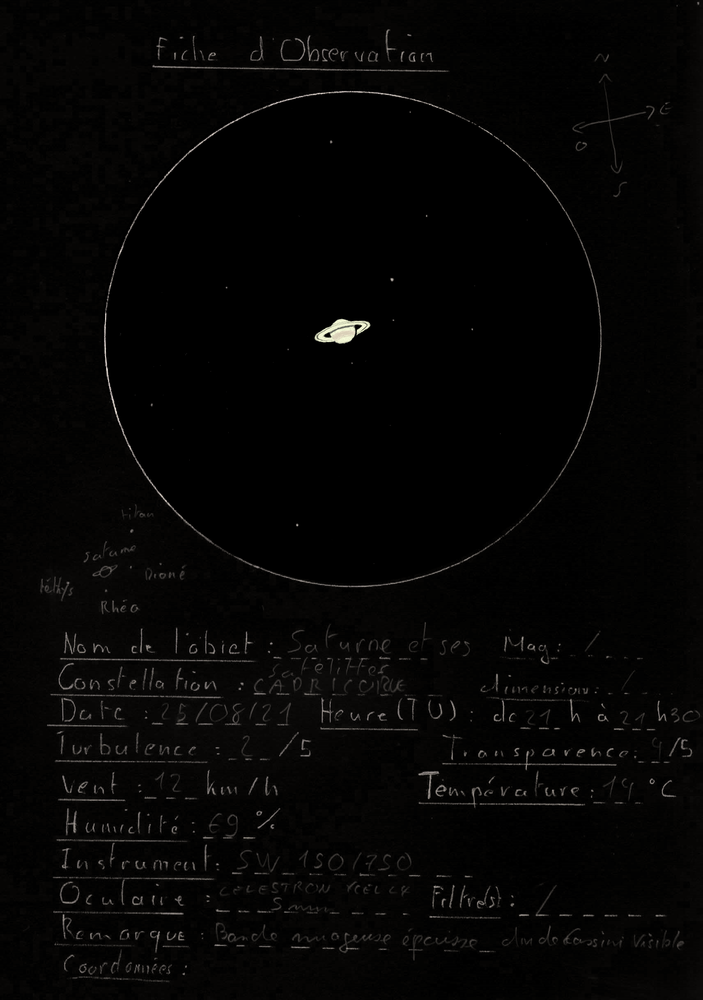 Fiche d'Observation
N
E
O
S
titan
Saturne
Dioné
téthys
Rhéa
Nom de l'objet : Saturne et ses Mag : /
satélittes
Constellation : CAPRICORNE dimension : /
Date : 25/08/21 Heure (TU) : de 21 h à 21 h30
Turbulence : 2 /5 Transparence : 4/5
Vent : 12 km/h Température : 14 °C
Humidité : 69 %
Instrument : SW 150/750
Oculaire : CELESTRON XCEL LX Filtre(s) : /
5mm
Remarque : Bande nuageuse épaisse div de Cassini visible
Coordonnées :